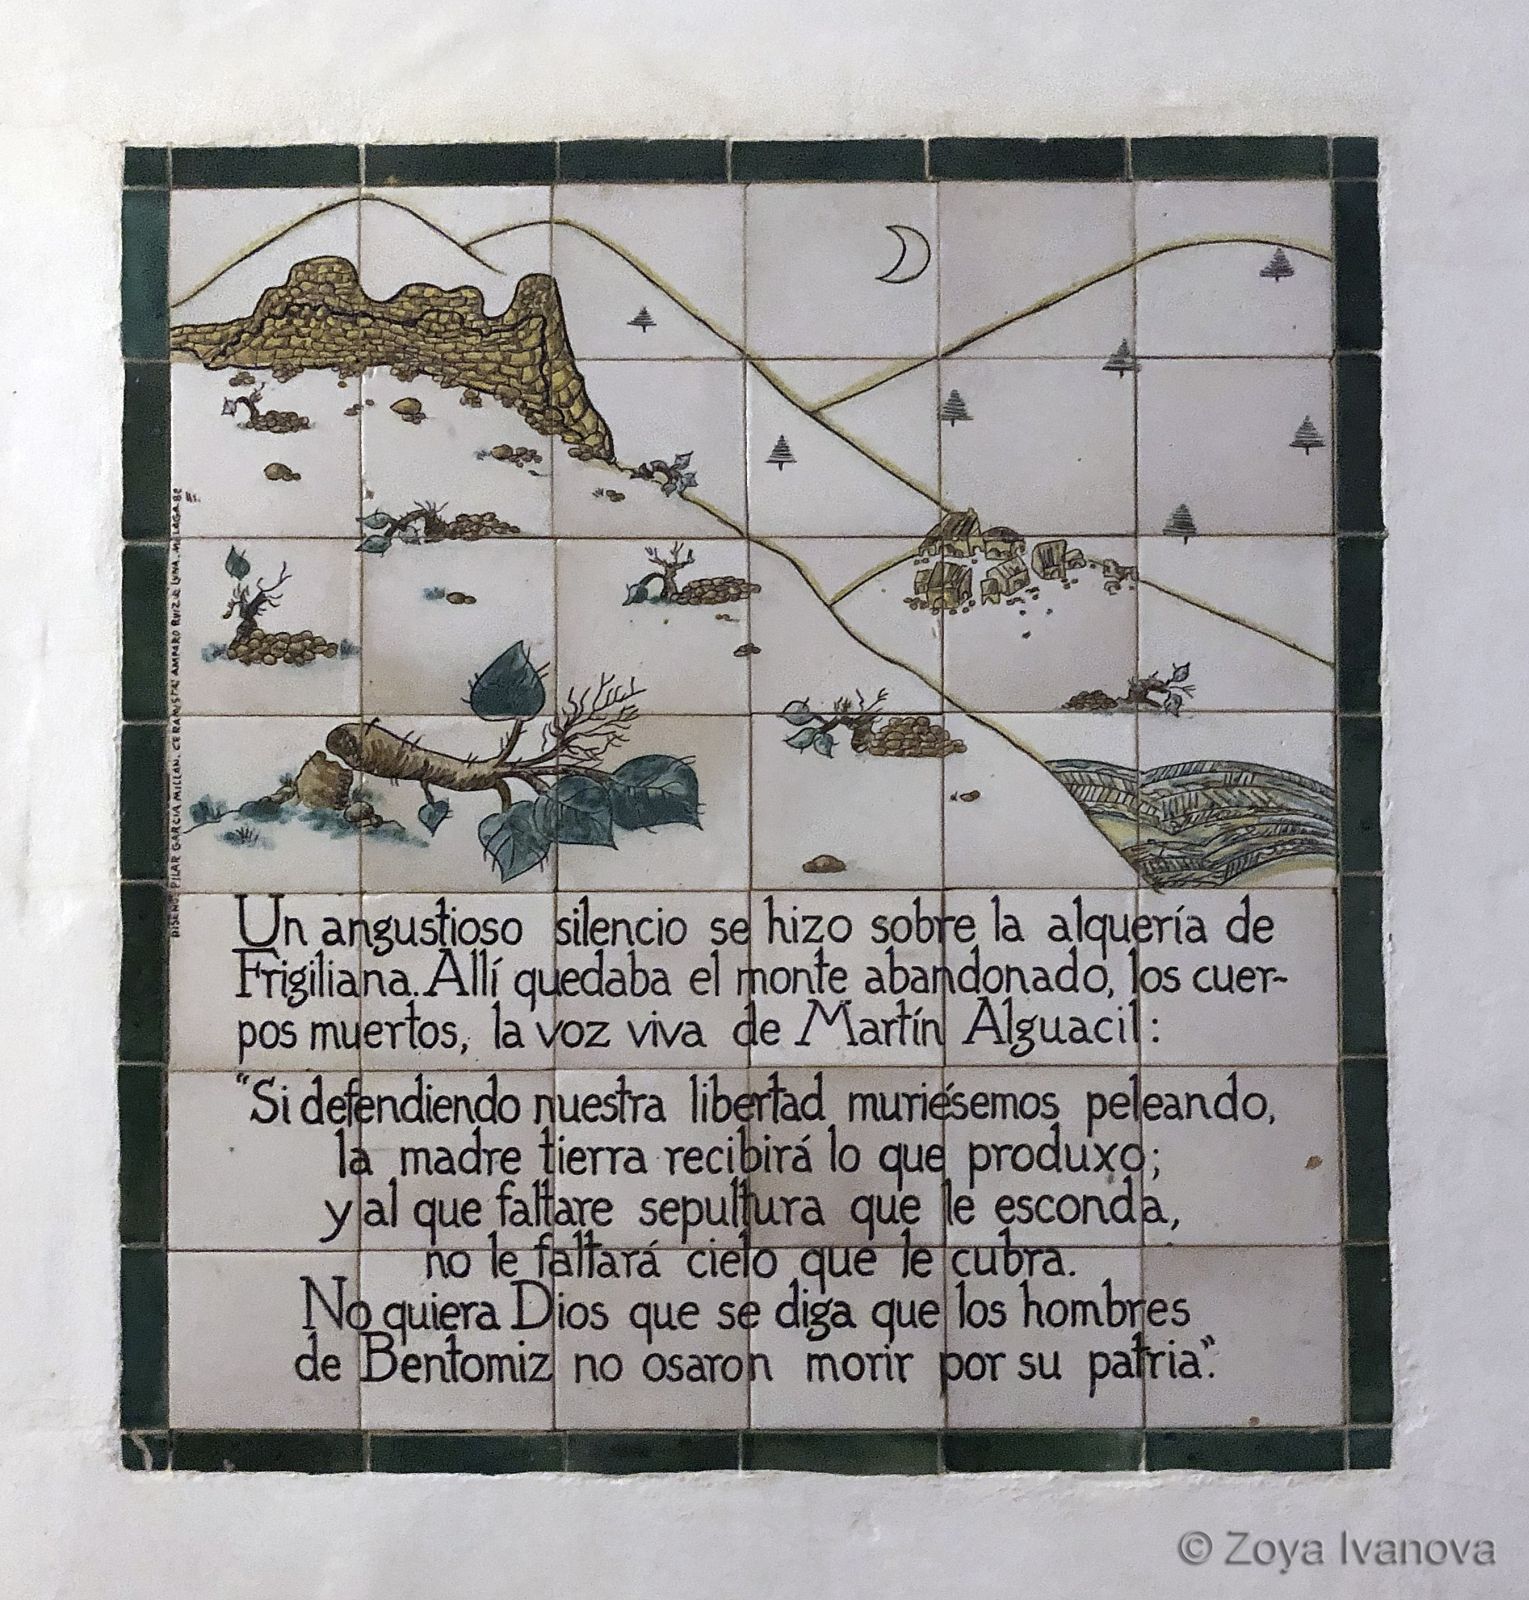 DISEÑO: PILAR GARCIA MILLAN. CERAMISTA: AMPARO RUIZ de LUNA. MALAGA-82
Un angustioso silencio se hizo sobre la alquería de
Frigiliana. Allí quedaba el monte abandonado, los cuer-
pos muertos, la voz viva de Martín Alguacil:
"Si defendiendo nuestra libertad muriésemos peleando,
la madre tierra recibirá lo que produxo;
y al que faltare sepultura que le esconda,
no le faltará cielo que le cubra.
No quiera Dios que se diga que los hombres
de Bentomiz no osaron morir por su patria".
© Zoya Ivanova